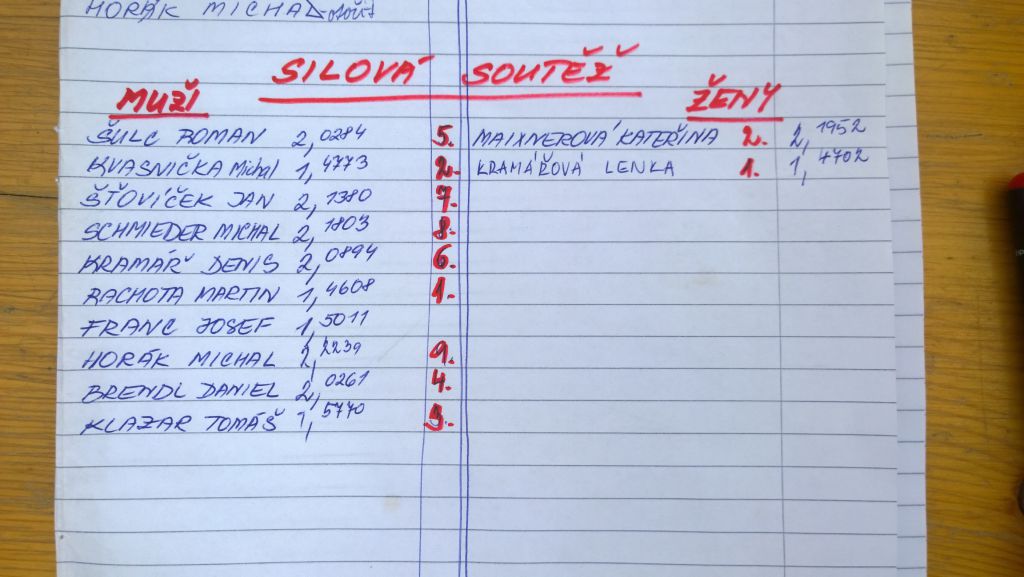 HORÁK MICHAL
SILOVÁ SOUTĚŽ
MUŽI ŽENY
ŠULC ROMAN 2,0284 5. MAIXNEROVÁ KATEŘINA 2. 2,1952
KVASNIČKA Michal 1,4773 2. KRAMÁŘOVÁ LENKA 1. 1,4702
ŠŤOVÍČEK JAN 2,1380 7.
SCHMIEDER MICHAL 2,1803 8.
KRAMÁŘ DENIS 2,0894 6.
RACHOTA MARTIN 1,4608 1.
FRANC JOSEF 1,5011
HORÁK MICHAL 2,2239 9.
BRENDL DANIEL 2,0261 4.
KLAZAR TOMÁŠ 1,5770 3.